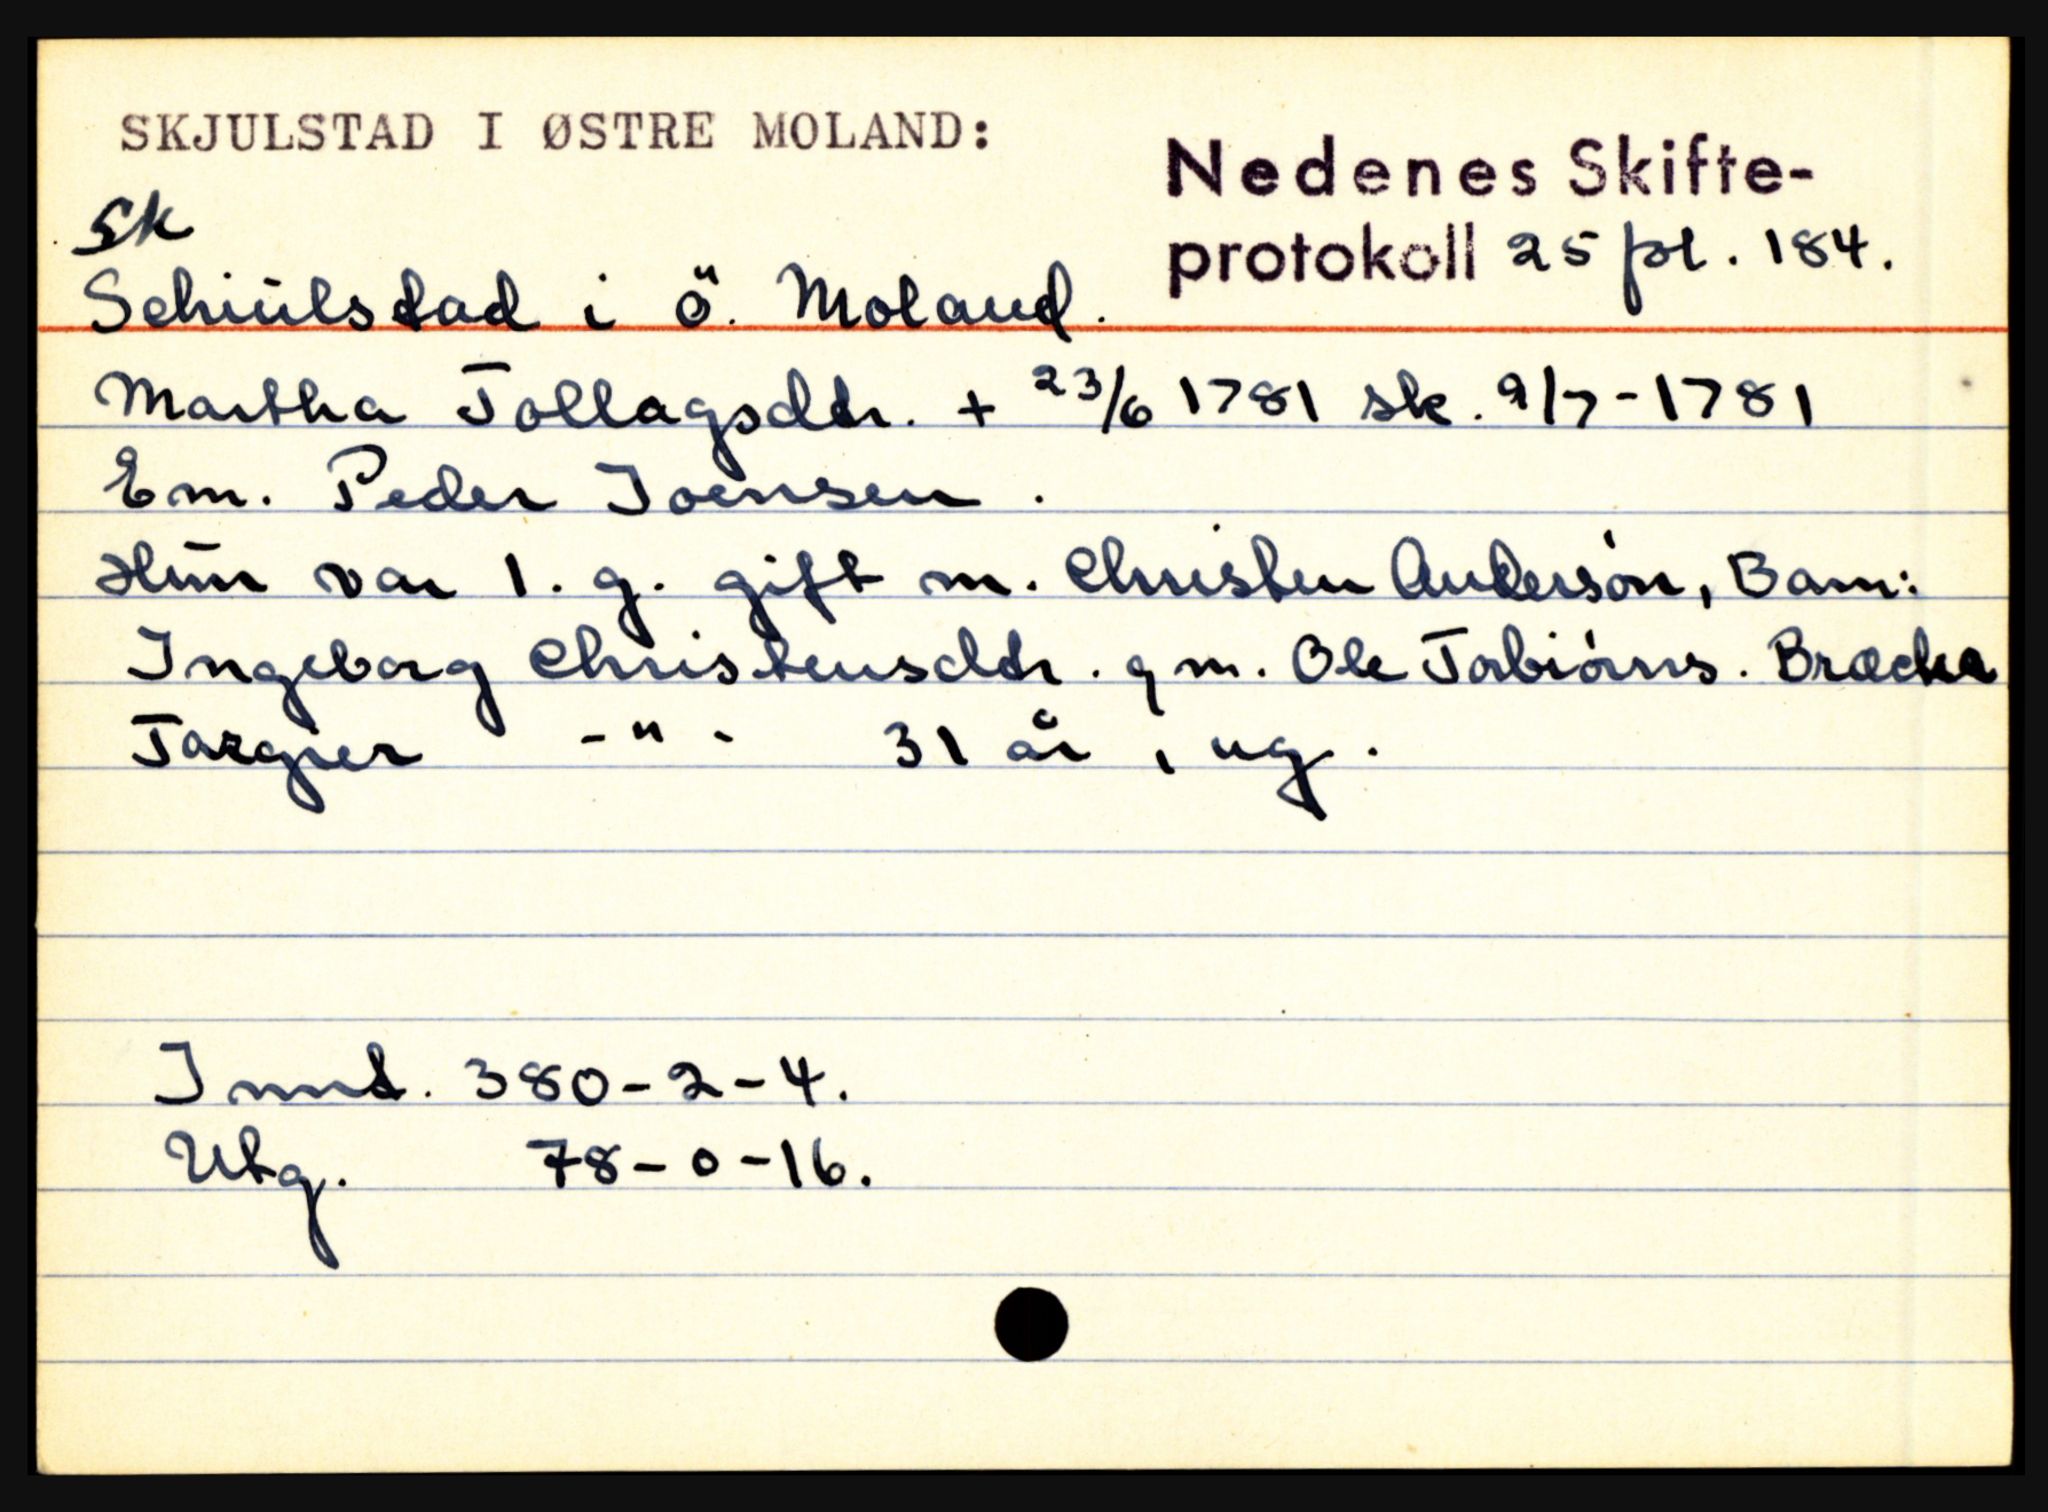 SKJULSTAD I ØSTRE MOLAND:
Nedenes Skifte-
protokoll 25 pl. 184.
Sk
Schiülstad i ö. Moland.
Martha Tollagsdtr. + 23/6 1781 sk. 9/7-1781
Em. Peder Joensen.
Hun var 1. g. gift m. Christen Andersön, Barn:
Ingeborg Christensdtr. gm. Ole Torbiörns. Bræcka
Targier -"- 31 år, ug.
Innt. 380-2-4.
Utg. 78-0-16.